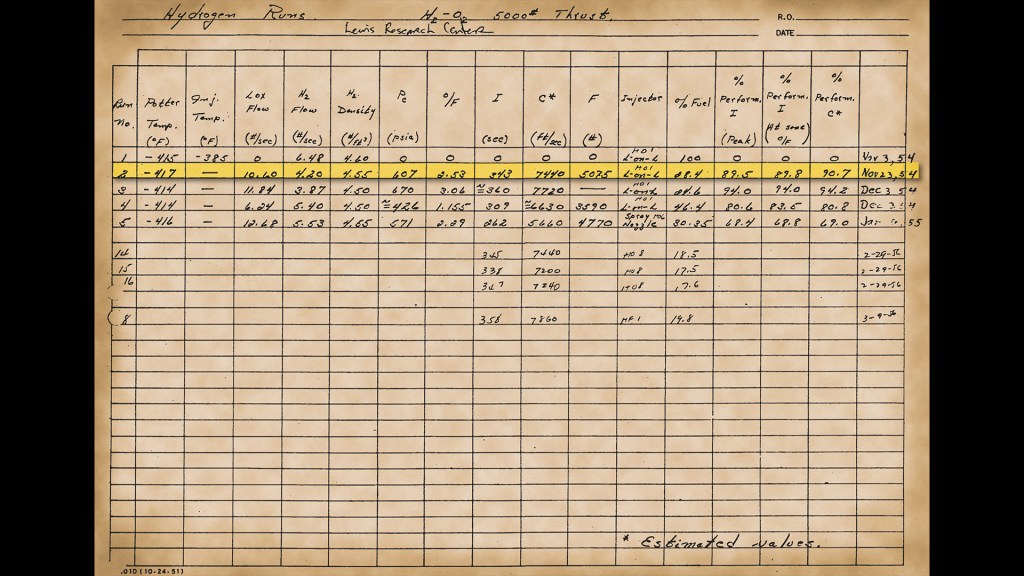 Hydrogen Runs. H2-O2 5000# Thrust. R.O.
Lewis Research Center DATE
Run No. Potter Temp. (°F) Inj. Temp. (°F) Lox Flow (#/sec) H2 Flow (#/sec) H2 Density (#/ft³) Pc (psia) O/F I (sec) C* (ft/sec) F (#) Injector % Fuel % Perform. I (Peak) % Perform. I (At same O/F) % Perform. C*
1 -415 -385 0 6.48 4.60 0 0 0 0 0 HO1 L-on-L 100 0 0 0 Nov 3, 54
2 -417 — 10.60 4.20 4.55 607 2.53 343 7440 5075 HO1 L-on-L 28.4 89.5 89.8 90.7 Nov 23, 54
3 -414 — 11.84 3.87 4.50 670 3.06 ≅360 7720 — HO1 L-on-L 24.6 94.0 94.0 94.2 Dec 3 54
4 -414 — 6.24 5.40 4.50 ≅426 1.155 309 ≅6630 3590 HO1 L-on-L 46.4 80.6 83.5 80.8 Dec 3
5 -416 — 12.68 5.53 4.55 571 2.29 262 5660 4770 Spray Nozzle 30.35 68.4 68.8 69.0 Jan 55
14 345 7440 HO8 18.5 2-29-56
15 338 7200 HO8 17.5 2-29-56
16 347 7240 HO8 17.6 2-29-56
8 358 7860 HF1 19.8 3-9-56
* Estimated values.
.01D (10-24-51)